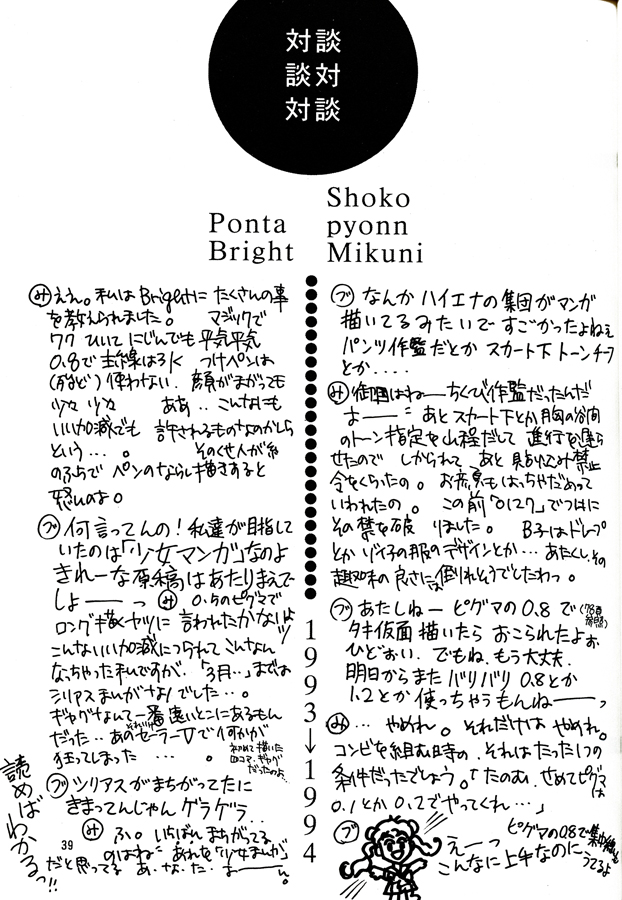 対談
談対
対談
Ponta
Bright
Shoko
pyonn
Mikuni
み ええ。私はBrightに たくさんの事
を教えられました。 マジックで
ワク ひいて にじんでも 平気平気
0.8で 主線はろく つけペンは
使わない. 顔がまがっても
ツカ ツカ ああ.. こんなにも
いい加減でも 許されるものなのかしら
という…。 そのくせ人が糸
のふちで ペンのならし描きすると
怒いのよ。
ブ 何言ってんの!私達が目指して
いたのは「少女マンガ」なのよ
きれーな原稿はあたりまえで
しょーーっ み 0.5のピグマで
ロング描くヤツに 言われたかないよ
こんないい加減につられて こんなん
なっちゃった私ですが、「3月…」までは
シリアスまんがなりでした…。
ギャグなんて一番遠いとこにあるもん
だった… あのセーラーVで何かが
狂ってしまった ….。
初めて描いた
四コマギャグ
だったのよ..
ブ シリアスがまちがってたに
きまってんじゃん ゲラゲラ..
み ふ。いちばん まちがってる
のはねこ あれを「少女まんが」
だと思ってる あ.な.た.よーーん。
読めばわかるっ!!
39
1993→1994
ブ なんか ハイエナの集団がマンガ
描いてるみたいで すごかったよねぇ
パンツ作監だとか スカート下トーンチーフ
とか....
み 御国はねー ちくび作監だったんだ
よーー あと スカート下とか胸の谷間
のトーン指定を山程だして 進行を遅ら
せたので しかられて、あと 貼りこみ禁止
令をくらったの。 お底意もはっちゃだめって
いわれたの。 この前「0127」でついに
その禁を破りました。 B子はドレープ
とか ゾイ子の服のデザインとか… あたくし、その
趣味の良さには倒れそうでしたわっ。
ブ あたしねー ピグマの0.8で
タキ仮面 描いたら おこられたよぉ
ひどぉい. でもね.もう大丈夫.
明日からまた バリバリ 0.8とか
1.2とか 使っちゃうもんねーーっ
み … やめれ。それだけは やめれ。
コンビを組む時の.それはたった1つの
条件だったでしょう。「たのむ.せめてピグマは
0.1とか 0.2でやってくれ…」
ブ えーっ ピグマの0.8で集中線も
こんなに上手なのに、うてるよ